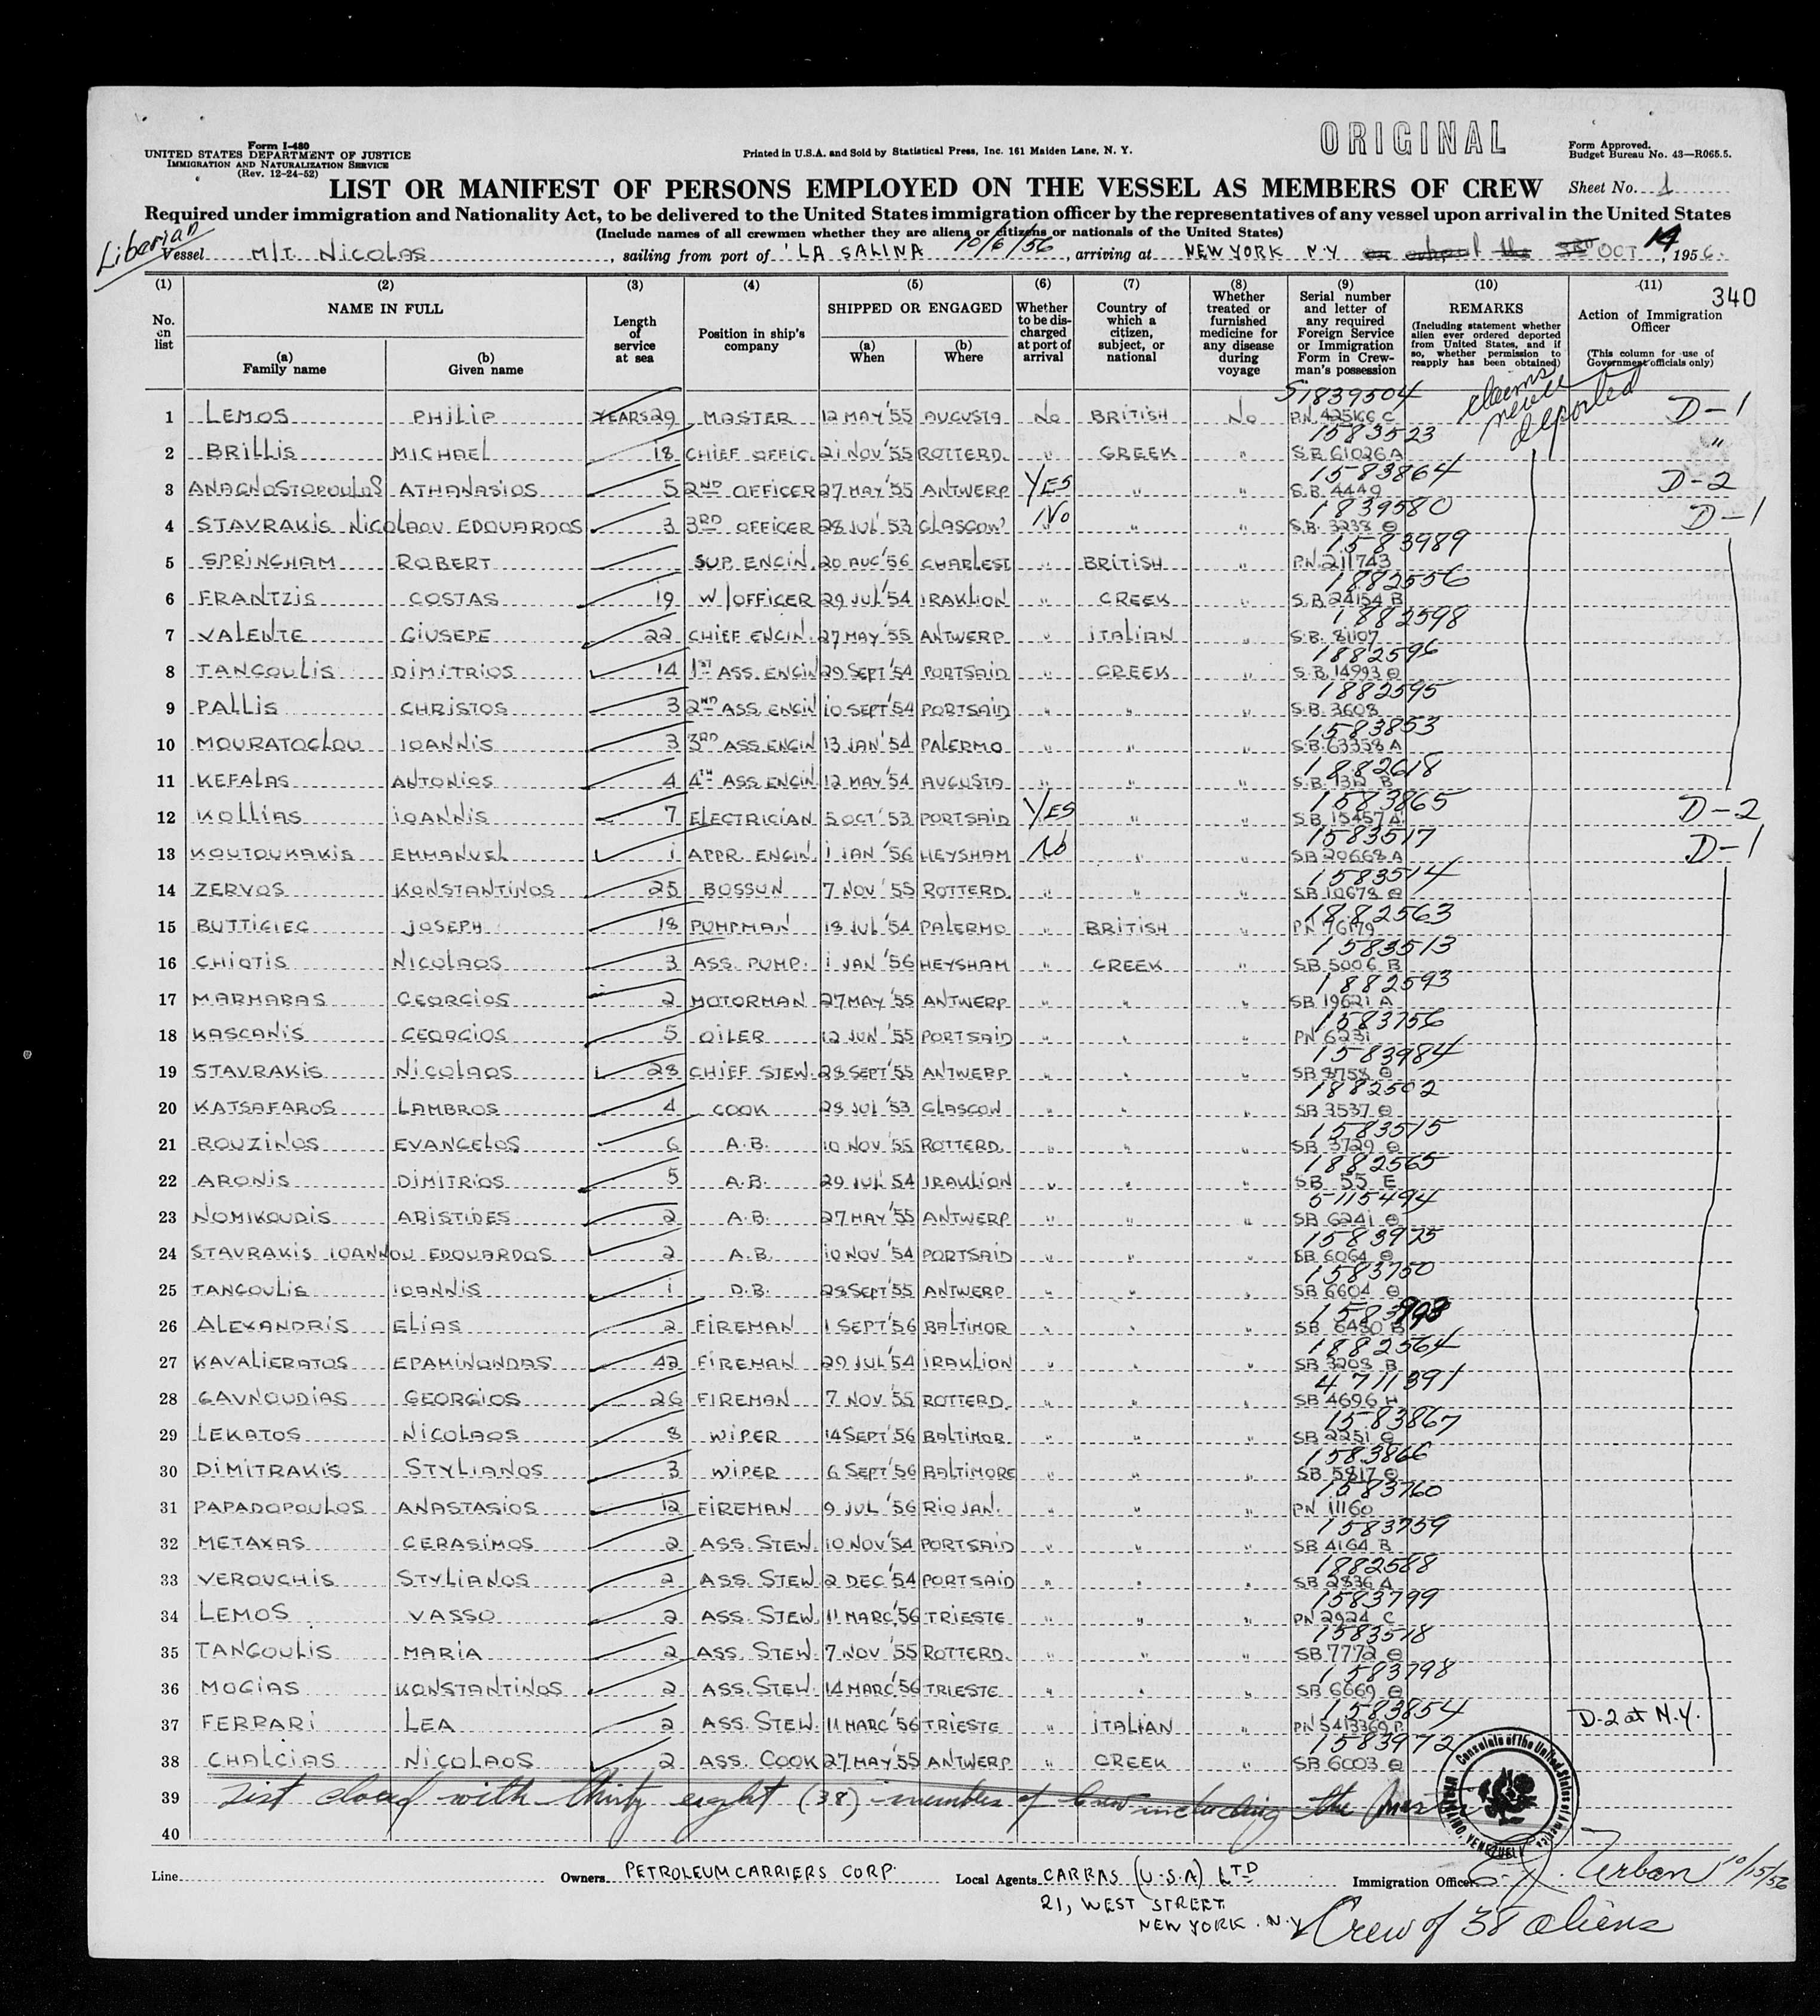 ORIGINAL
Form I-480
UNITED STATES DEPARTMENT OF JUSTICE
IMMIGRATION AND NATURALIZATION SERVICE
(Rev. 12-24-52)
Printed in U.S.A. and Sold by Statistical Press, Inc. 161 Maiden Lane, N. Y.
Form Approved.
Budget Bureau No. 43—R065.5.
LIST OR MANIFEST OF PERSONS EMPLOYED ON THE VESSEL AS MEMBERS OF CREW Sheet No. 1
Required under immigration and Nationality Act, to be delivered to the United States immigration officer by the representatives of any vessel upon arrival in the United States
(Include names of all crewmen whether they are aliens or citizens or nationals of the United States)
Liberian
Vessel M/T. NICOLAS, sailing from port of LA SALINA 10/6/56, arriving at NEW YORK N.Y on about the 3RD OCT 14, 1956.
340
(1) No. on list
(2) NAME IN FULL (a) Family name (b) Given name
(3) Length of service at sea
(4) Position in ship's company
(5) SHIPPED OR ENGAGED (a) When (b) Where
(6) Whether to be discharged at port of arrival
(7) Country of which a citizen, subject, or national
(8) Whether treated or furnished medicine for any disease during voyage
(9) Serial number and letter of any required Foreign Service or Immigration Form in Crewman's possession
(10) REMARKS (Including statement whether alien ever ordered deported from United States, and if so, whether permission to reapply has been obtained)
(11) Action of Immigration Officer (This column for use of Government officials only)
claims never deported
1 LEMOS PHILIP YEARS 29 MASTER 12 MAY '55 AUGUSTA No BRITISH No S1839504 PN. 425166 C D-1
2 BRILLIS MICHAEL 18 CHIEF OFFIC. 21 NOV '55 ROTTERD. " GREEK " 1583523 S.B. 61026 A "
3 ANAGNOSTOPOULOS ATHANASIOS 5 2ND OFFICER 27 MAY '55 ANTWERP YES " " 1583864 S.B. 4449 D-2
4 STAVRAKIS NICOLAOU EDOUARDOS 3 3RD OFFICER 28 JUL' 53 GLASGOW No " " 1839580 S.B. 3238 Θ D-1
5 SPRINGHAM ROBERT SUP. ENGIN. 20 AUG '56 CHARLEST " BRITISH " 1583989 P.N. 211743
6 FRANTZIS COSTAS 19 W/OFFICER 29 JUL '54 IRAKLION " GREEK " 1882556 S.B. 24154 B
7 VALENTE GIUSEPE 22 CHIEF ENGIN. 27 MAY '55 ANTWERP " ITALIAN " 1882598 S.B. 81107
8 TANGOULIS DIMITRIOS 14 1ST ASS. ENGIN 29 SEPT '54 PORTSAID " GREEK " 1882596 S.B. 14993 Θ
9 PALLIS CHRISTOS 3 2ND ASS. ENGIN 10 SEPT '54 PORTSAID " " " 1882595 S.B. 3608
10 MOURATOGLOU IOANNIS 3 3RD ASS. ENGIN 13 JAN '54 PALERMO " " " 1583853 S.B. 63358 A
11 KEFALAS ANTONIOS 4 4TH ASS. ENGIN. 12 MAY '54 AUGUSTA " " " 1882618 S.B. 1312 B
12 KOLLIAS IOANNIS 7 ELECTRICIAN 5 OCT' 53 PORTSAID YES " " 1583865 S.B. 15457 A D-2
13 KOUTOUKAKIS EMMANUEL 1 APPR. ENGIN. 1 JAN '56 HEYSHAM No " " 1583517 SB 20668 A D-1
14 ZERVOS KONSTANTINOS 25 BOSSUN 7 NOV '55 ROTTERD. " " " 1583514 SB 10678 Θ
15 BUTTIGIEG JOSEPH 18 PUMPMAN 18 JUL '54 PALERMO " BRITISH " 1882563 PN 76179
16 CHIOTIS NICOLAOS 3 ASS. PUMP. 1 JAN '56 HEYSHAM " GREEK " 1583513 SB 5006 B
17 MARMARAS GEORGIOS 2 MOTORMAN 27 MAY '55 ANTWERP " " " 1882593 SB 19621 A
18 KASCANIS GEORGIOS 5 OILER 12 JUN '55 PORTSAID " " " 1583756 PN 6231
19 STAVRAKIS NICOLAOS 28 CHIEF STEW. 28 SEPT '55 ANTWERP " " " 1583984 SB 8758 Θ
20 KATSAFAROS LAMBROS 4 COOK 28 JUL '53 GLASGOW " " " 1882502 SB 3537 Θ
21 ROUZINOS EVANGELOS 6 A.B. 10 NOV '55 ROTTERD. " " " 1583515 SB 3729 Θ
22 ARONIS DIMITRIOS 5 A.B. 29 JUL '54 IRAKLION " " " 1882565 SB 55 E
23 NOMIKOUDIS ARISTIDES 2 A.B. 27 MAY '55 ANTWERP " " " 5115494 SB 6241 Θ
24 STAVRAKIS IOANNOU EDOUARDOS 2 A.B. 10 NOV '54 PORTSAID " " " 1583975 SB 6064 Θ
25 TANGOULIS IOANNIS 1 D.B. 28 SEPT '55 ANTWERP " " " 1583750 SB 6604 Θ
26 ALEXANDRIS ELIAS 2 FIREMAN 1 SEPT '56 BALTIMOR " " " SB 6450 B
27 KAVALIERATOS EPAMINONDAS 42 FIREMAN 29 JUL '54 IRAKLION " " " 1882564 SB 3208 B
28 GAVNOUDIAS GEORGIOS 26 FIREMAN 7 NOV '55 ROTTERD. " " " 4711391 SB 4696 H
29 LEKATOS NICOLAOS 8 WIPER 14 SEPT '56 BALTIMOR. " " " 1583867 SB 2251 Θ
30 DIMITRAKIS STYLIANOS 3 WIPER 6 SEPT '56 BALTIMORE " " " 1583866 SB 5817 Θ
31 PAPADOPOULOS ANASTASIOS 12 FIREMAN 9 JUL '56 RIO JAN. " " " 1583760 PN 11160
32 METAXAS GERASIMOS 2 ASS. STEW. 10 NOV '54 PORTSAID " " " 1583759 SB 4164 B
33 VEROUCHIS STYLIANOS 2 ASS. STEW. 2 DEC '54 PORTSAID " " " 1882588 SB 2836 A
34 LEMOS VASSO 2 ASS. STEW. 11 MARC '56 TRIESTE " " " 1583799 PN 2924 C
35 TANGOULIS MARIA 2 ASS. STEW. 7 NOV '55 ROTTERD. " " " 1583518 SB 7772 Θ
36 MOGIAS KONSTANTINOS 2 ASS. STEW. 14 MARC '56 TRIESTE " " " 1583798 SB 6669 Θ
37 FERRARI LEA 2 ASS. STEW. 11 MARC '56 TRIESTE " ITALIAN " 1583854 PN 5413369 P. D-2 at N.Y.
38 CHALCIAS NICOLAOS 2 ASS. COOK 27 MAY '55 ANTWERP " GREEK " 1583972 SB 6003 Θ
39 List closed with thirty eight (38) members of crew including the Master
40
Consulate of the United States of America
MARACAIBO, VENEZUELA
Line Owners PETROLEUM CARRIERS CORP. Local Agents CARRAS (U.S.A) LTD Immigration Officer Urban 10/15/56
21, WEST STREET
NEW YORK. N.Y
Crew of 38 aliens